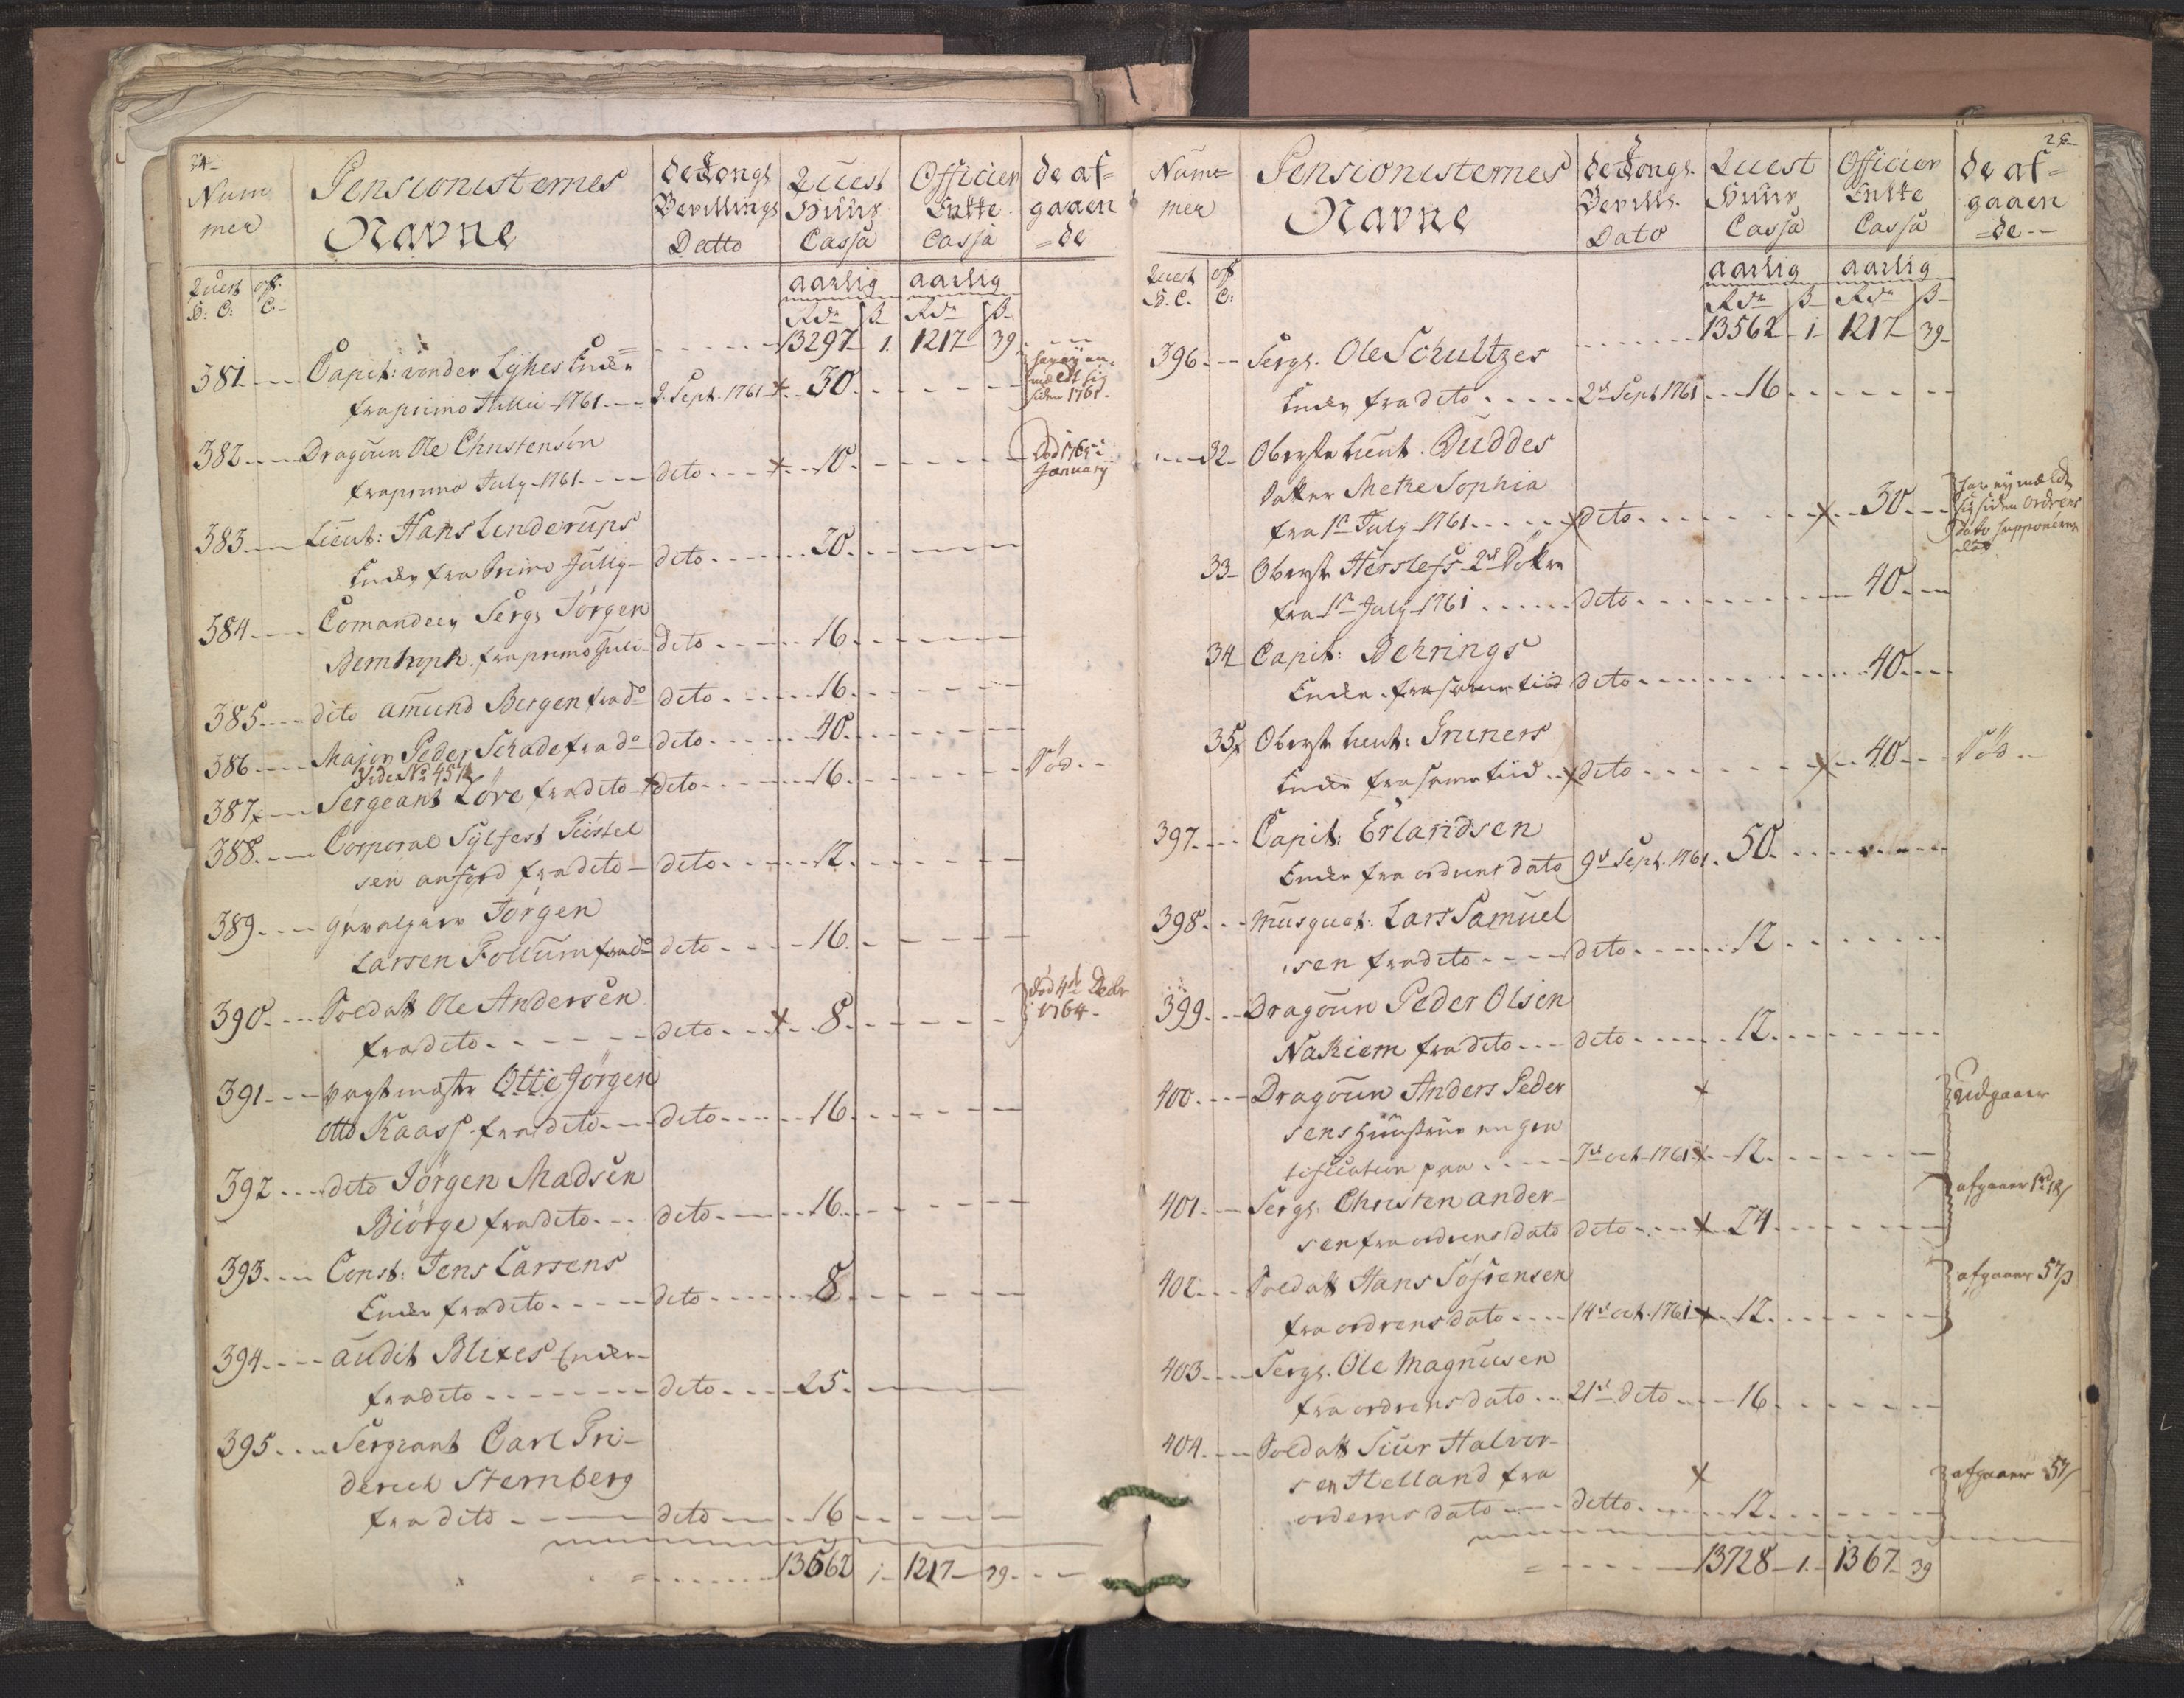 24
Num
mer
Pensionisternes
Navne
de Kongl
Bevillings
Datto
Quest
Huus
Cassa
Officier
Enkke
Cassa
de af=
gaaen
=de
Quest
H: C:
off:
C:
aarlig
aarlig
Rdr ß Rdr ß
13297 1. 1217 39
381 Capit: von der Lyhes Enke
fra primo Julii 1761 2. Sept. 1761 30
har ey an-
meldt sig
siden 1761.
382 Dragoun Ole Christensen
fra primo July 1761 dito 10
Död 1765 i
January
383 Lieut: Hans Linderups
Enke fra Primo Jully dito 20
384 Comandeer Sergt Jörgen
Berntroph fra primo Juli dito 16
385 dito amund Bergen fra do dito 16
386 Major Peder Schade fra do dito 40
Vide No 451
387 Sergeant Löve fra dito dito 16 Död
388 Corporal Sylfest Tiöstel
sen anförd fra dito dito 12
389 Jörgen
Larsen Follum fra do dito 16
390 Soldatt Ole Andersen
fra dito dito 8
död 4de Decbr
1764
391 Vagtmester Otte Jörgen
Otto Kaass fra dito dito 16
392 dito Jörgen Madsen
Biörge fra dito dito 16
393 Const: Jens Larsens
Enke fra dito dito 8
394 audit Blixes Enke
fra dito dito 25
395 Sergeant Carl Fri-
derich Sternberg
fra dito dito 16
13562 1 1217 39
25
Num=
mer
Pensionisternes
Navne
de Kongl.
Bevills.
Dato
Quest
Huus
Cassa
Officier
Enkke
Cassa
de af=
gaaen
=de
Quest
H. C.
off
C:
aarlig aarlig
Rdr ß Rdr ß
13562 1 1217 39
396 Sergt. Ole Schultzes
Enke fra dito 2d Sept 1761 16
32 Oberste Lieut. Buddes
Datter Mette Sophia
fra 1st July 1761 dito 30
har ey meldt
sig siden Ordrens
Dato supponeres
död
33 Oberst Herslefs 2de Döttre
fra 1st July 1761 dito 40
34 Capit: Behrings
Enke fra samme tiid dito 40
35 Oberst Lieut: Gruners
Enke fra samme tiid dito 40 Död
397 Capit: Erlandsen
Enke fra ordrens dato 9d Sept. 1761 50
398 Musquet: Lars Samuel
sen fra dito dito 12
399 Dragoun Peder Olsen
Nakiem fra dito dito 12
400 Dragoun Anders Peder
sens Huustrue en gra
tification paa 7d oct 1761 12
Udgaaer
401 Sergt. Christen ander-
sen fra ordrens dato dito 24
afgaaer
402 Soldatt Hans Söfrensen
fra ordrens dato 14d oct. 1761 12
afgaaer 57
403 Sergt. Ole Magnusen
fra ordrens dato 21d dito 16
404 Soldatt Siur Halvor-
sen Helland fra
orderns dato ditto 12
afgaaer 57
13728 1. 1367 39